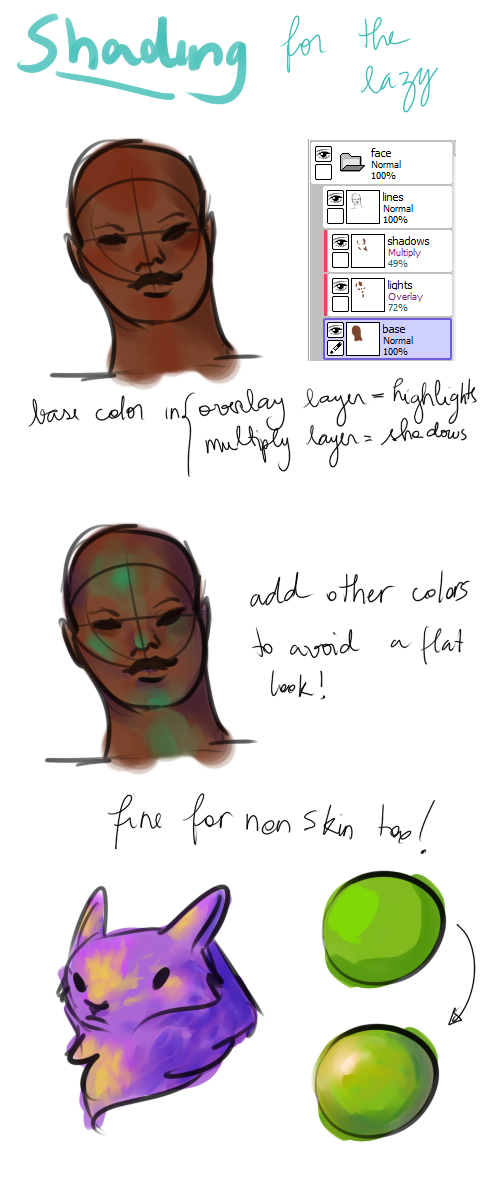 Shading for the
lazy
face
Normal
100%
lines
Normal
100%
shadows
Multiply
49%
lights
Overlay
72%
base
Normal
100%
base color in { overlay layer = highlights
multiply layer = shadows
add other colors
to avoid a flat
look!
fine for non skin too!